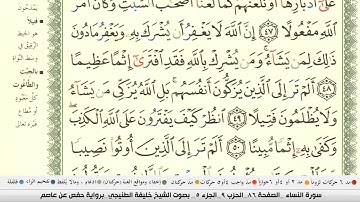 عَلَىٰٓ أَدْبَارِهَآ أَوْ نَلْعَنَهُمْ كَمَا لَعَنَّآ أَصْحَٰبَ ٱلسَّبْتِ وَكَانَ أَمْرُ
ٱللَّهِ مَفْعُولًا ٤٧ إِنَّ ٱللَّهَ لَا يَغْفِرُ أَن يُشْرَكَ بِهِۦ وَيَغْفِرُ مَا دُونَ
ذَٰلِكَ لِمَن يَشَآءُ ۚ وَمَن يُشْرِكْ بِٱللَّهِ فَقَدِ ٱفْتَرَىٰٓ إِثْمًا عَظِيمًا
٤٨ أَلَمْ تَرَ إِلَى ٱلَّذِينَ يُزَكُّونَ أَنفُسَهُم ۚ بَلِ ٱللَّهُ يُزَكِّى مَن يَشَآءُ
وَلَا يُظْلَمُونَ فَتِيلًا ٤٩ ٱنظُرْ كَيْفَ يَفْتَرُونَ عَلَى ٱللَّهِ ٱلْكَذِبَ
وَكَفَىٰ بِهِۦٓ إِثْمًا مُّبِينًا ٥٠ أَلَمْ تَرَ إِلَى ٱلَّذِينَ أُوتُوا۟ نَصِيبًا
فتيلا
هو الخيط
الرقيق في
وسط النواة
بالجبت
والطاغوت
كل معبود
أو مطاع
غيره تعالى
سورة النساء .. الصفحة ٨٦ .. الحزب ٩ .. الجزء ٥ .. بصوت الشيخ خليفة الطنيجي .. برواية حفص عن عاصم